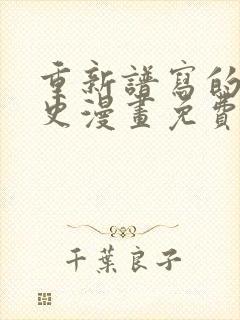 重新譜寫的
史漫畫免費
千葉良子